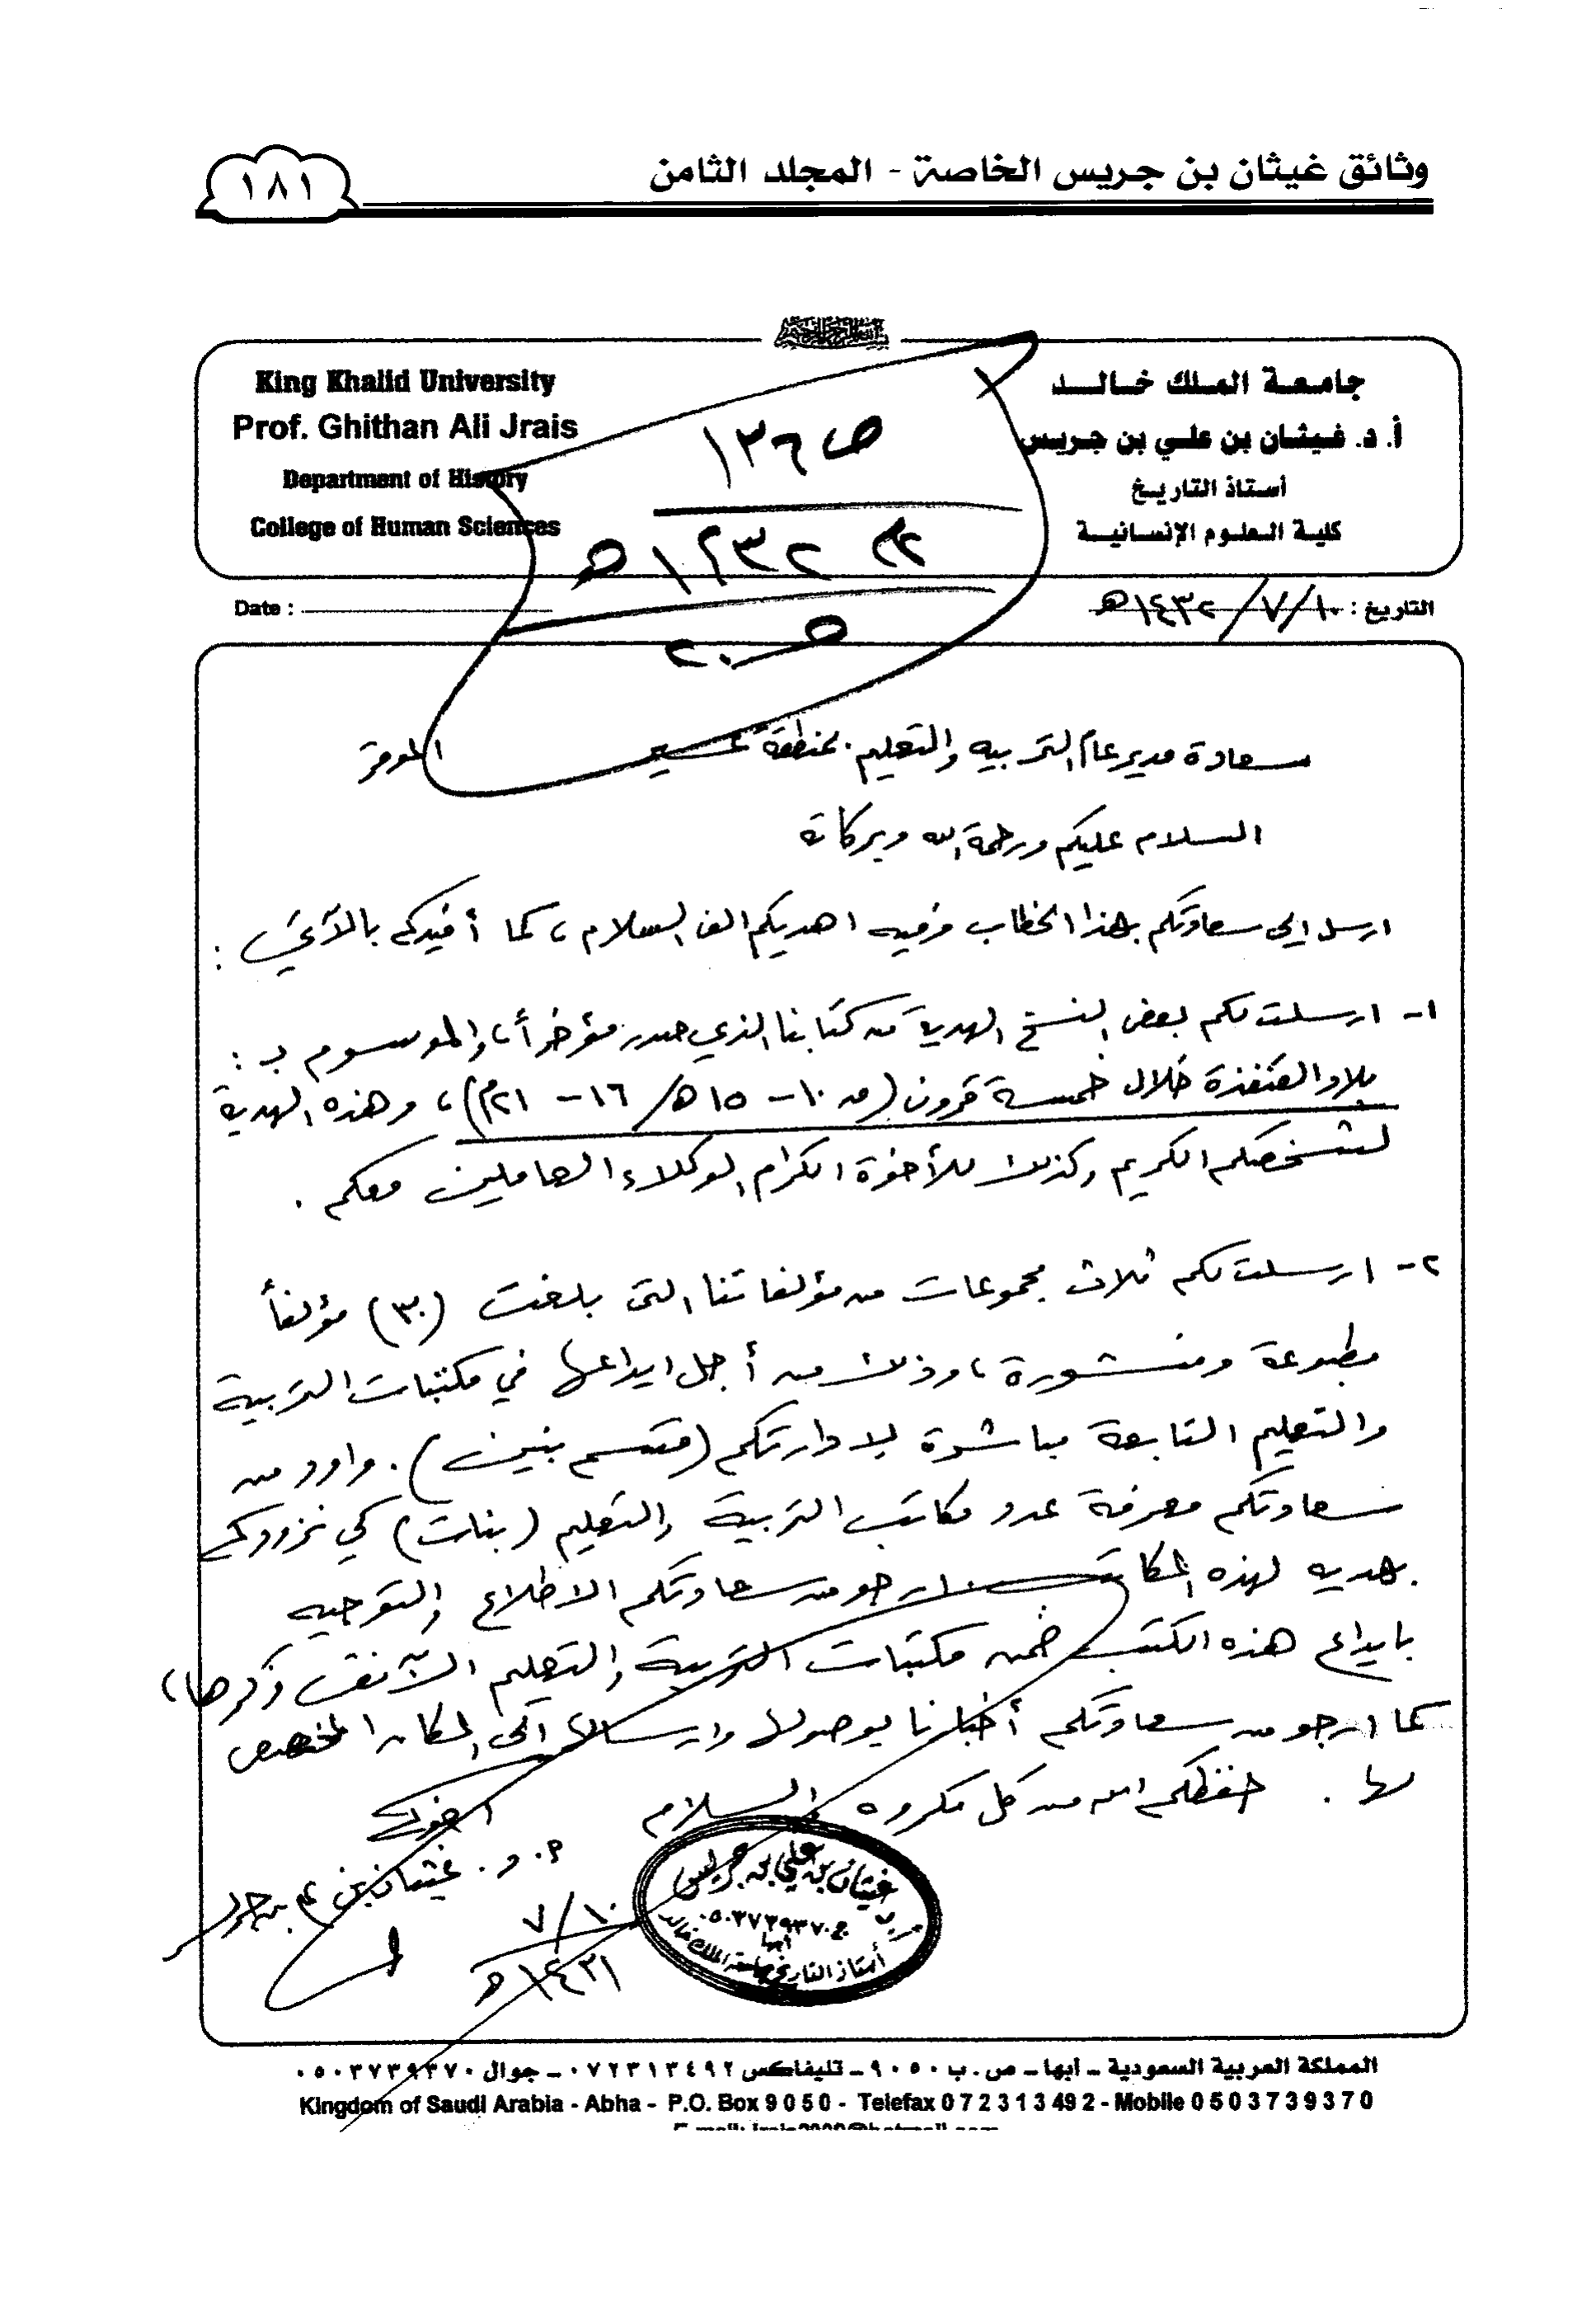 وثائق غيثان بن جريس الخاصة - المجلد الثامن
١٨١
جامعة الملك خالد
أ. د. غيثان بن علي بن جريس
أستاذ التاريخ
كلية العلوم الإنسانية
King Khalid University
Prof. Ghithan Ali Jrais
Department of History
College of Human Sciences
ص ١٣٦
١٤٣٢هـ
التاريخ : ١٠/٧/١٤٣٢هـ
Date :
سعادة مدير عام التربيه والتعليم بمنطقة عسير الموقر
السلام عليكم ورحمة الله وبركاته
ارسل الى سعادتكم بهذا الخطاب وفيه اهديكم الف السلام ، كما أفيدكم بالآتي :
١- ارسلت لكم بعض النسخ الهدية من كتابنا الذي صدر مؤخراً ، والموسوم بـ :
بلاد القنفذة خلال خمسة قرون (ق ١٠ - ١٥هـ / ١٦ - ٢١م) ، وهذه الهدية
لشخصكم الكريم وكذلك للأخوة الكرام الوكلاء العاملين معكم .
٢- ارسلت لكم ثلاث مجموعات من مؤلفاتنا التى بلغت (٣٠) مؤلفاً
مطبوعة ومنشورة ، وذلك من أجل ايداعها في مكتبات التربية
والتعليم التابعة مباشرة لادارتكم (قسم بنين) . واود من
سعادتكم معرفة عدد مكاتب التربية والتعليم (بنات) كي نزودكم
بهديه لهذه المكاتب . ارجو من سعادتكم الاطلاع والتوجيه
بايداع هذه الكتب ضمن مكتبات التربية والتعليم الآنف ذكرها ،
كما ارجو من سعادتكم أخبارنا بوصولها وارسالها الى المكان المخصص
لها . حفظكم الله من كل مكروه والسلام
اخوكم
أ. د. غيثان بن علي بن جريس
١٠/٧
١٤٣٢هـ
غيثان بن علي بن جريس
ج ٠٥٠٣٧٣٩٣٧٠
أبها
أستاذ التاريخ بجامعة الملك خالد
المملكة العربية السعودية - أبها - ص. ب ٩٠٥٠ - تليفاكس ٠٧٢٣١٣٤٩٢ - جوال ٠٥٠٣٧٣٩٣٧٠
Kingdom of Saudi Arabia - Abha - P.O. Box 9 0 5 0 - Telefax 0 7 2 3 1 3 49 2 - Mobile 0 5 0 3 7 3 9 3 7 0